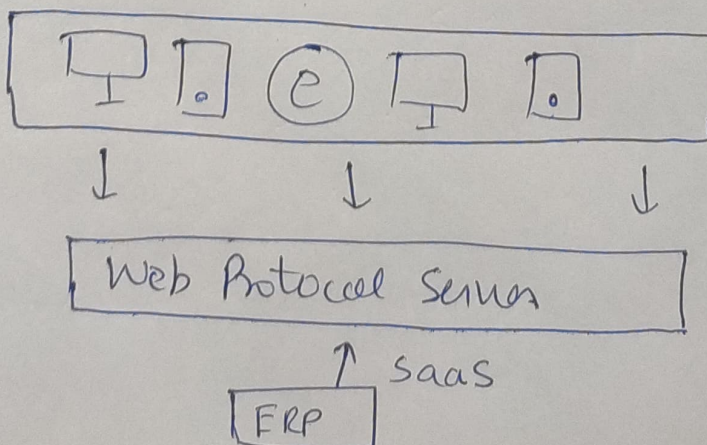 e
Web Protocol Server
SaaS
ERP